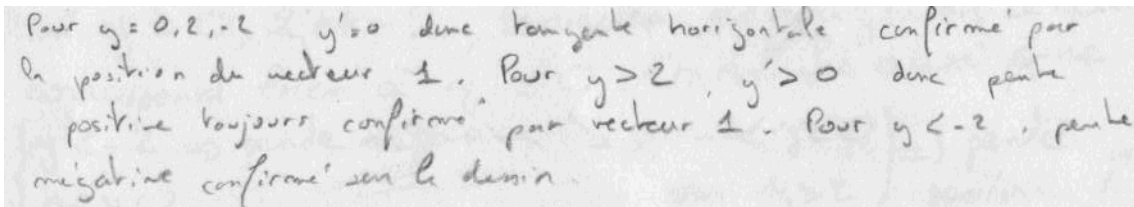 Pour y = 0, 2, -2 y' = 0 donc tangente horizontale confirmé par
la position du vecteur 1. Pour y > 2, y' > 0 donc pente
positive toujours confirmé par vecteur 1. Pour y < -2, pente
négative confirmé sur le dessin.